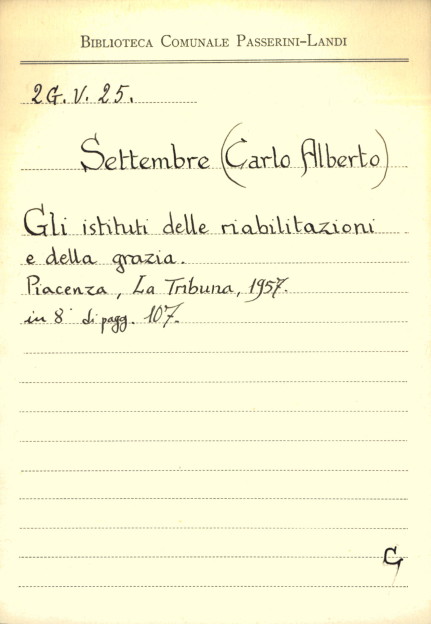 Biblioteca Comunale Passerini-Landi
2G. V. 25.
Settembre (Carlo Alberto)
Gli istituti delle riabilitazioni
e della grazia.
Piacenza, La Tribuna, 1957.
in 8° di pagg. 107.
G